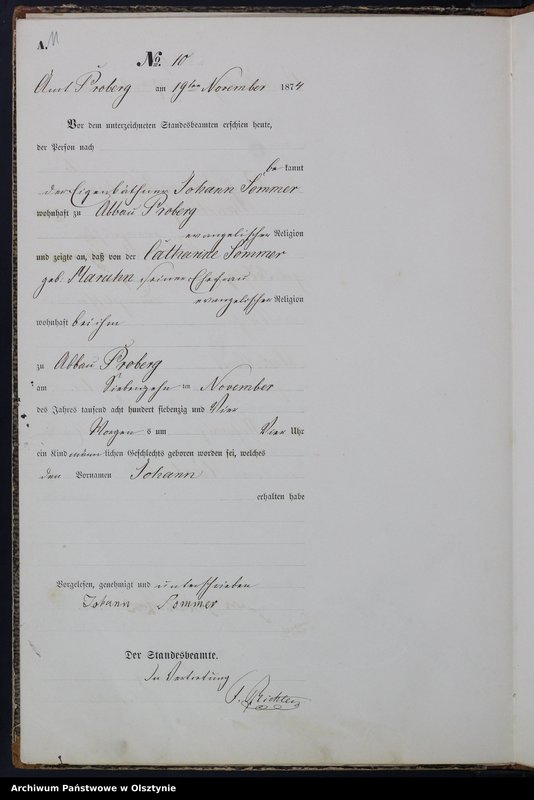 A. 11
No. 10
Amt Proberg am 19ten November 1874
Vor dem unterzeichneten Standesbeamten erschien heute,
der Person nach
be kannt
der Eigenkäthner Johann Sommer
wohnhaft zu Abbau Proberg
evangelischer Religion
und zeigte an, daß von der Catharine Sommer
geb. seiner Ehefrau
evangelischer Religion
wohnhaft bei ihm
zu Abbau Proberg
am Siebenzehn ten November
des Jahres tausend acht hundert siebenzig und Vier
Morgen s um Vier Uhr
ein Kind männ lichen Geschlechts geboren worden sei, welches
den Vornamen Johann
erhalten habe
Vorgelesen, genehmigt und unterschrieben
Johann Sommer
Der Standesbeamte.
In Vertretung
Richter
Archiwum Państwowe w Olsztynie